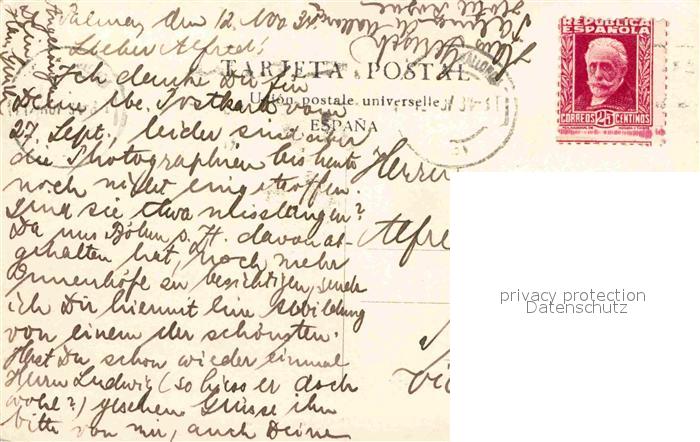 Palma, den 12. Nov 34.
Lieber Alfred!
Ich danke Dir für
Deine lbe. Postkarte vom
27. Sept., leider sind aber
die Photographien bis heute
noch nicht eingetroffen.
Sind sie etwa misslungen?
Da uns Böhm s. Zt. davon ab-
gehalten hat, noch mehr
Innenhöfe zu besichtigen, sende
ich Dir hiermit eine Abbildung
von einem der schönsten.
Hast Du schon wieder einmal
Herrn Ludwig (so hiess er doch
wohl?) gesehen Grüsse ihn
bitte von mir, auch Deine
Angehörigen
Dein
Hans
Palma de Mallorca
TARJETA POSTAL
Unión postale universelle
ESPAÑA
REPUBLICA
ESPAÑOLA
CORREOS 25 CENTIMOS
Herrn
Alfre
privacy protection
Datenschutz